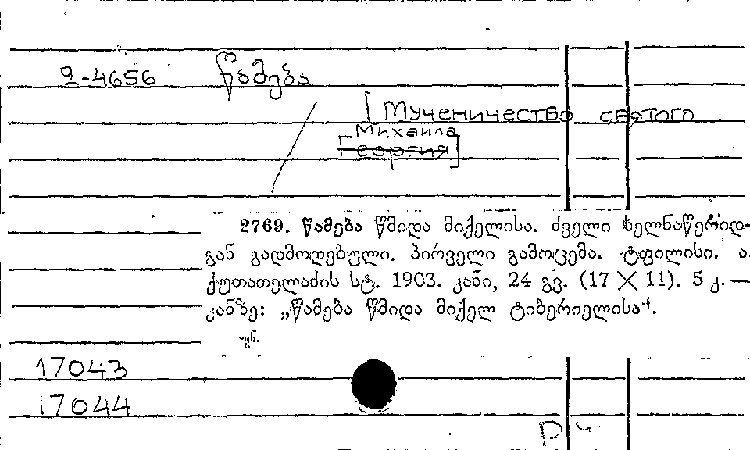 2-4656 წამება
[Мученичество святого
Михаила
[Георгия]
2769. წამება წმიდა მიქელისა. ძველი ხელნაწერიდ-
გან გადმოღებული. პირველი გამოცემა. ტფილისი. ა.
ქუთათელაძის სტ. 1903. კანი, 24 გვ. (17 × 11). 5 კ. —
კანზე: „წამება წმიდა მიქელ ტიბერიელისა“.
17043
17044